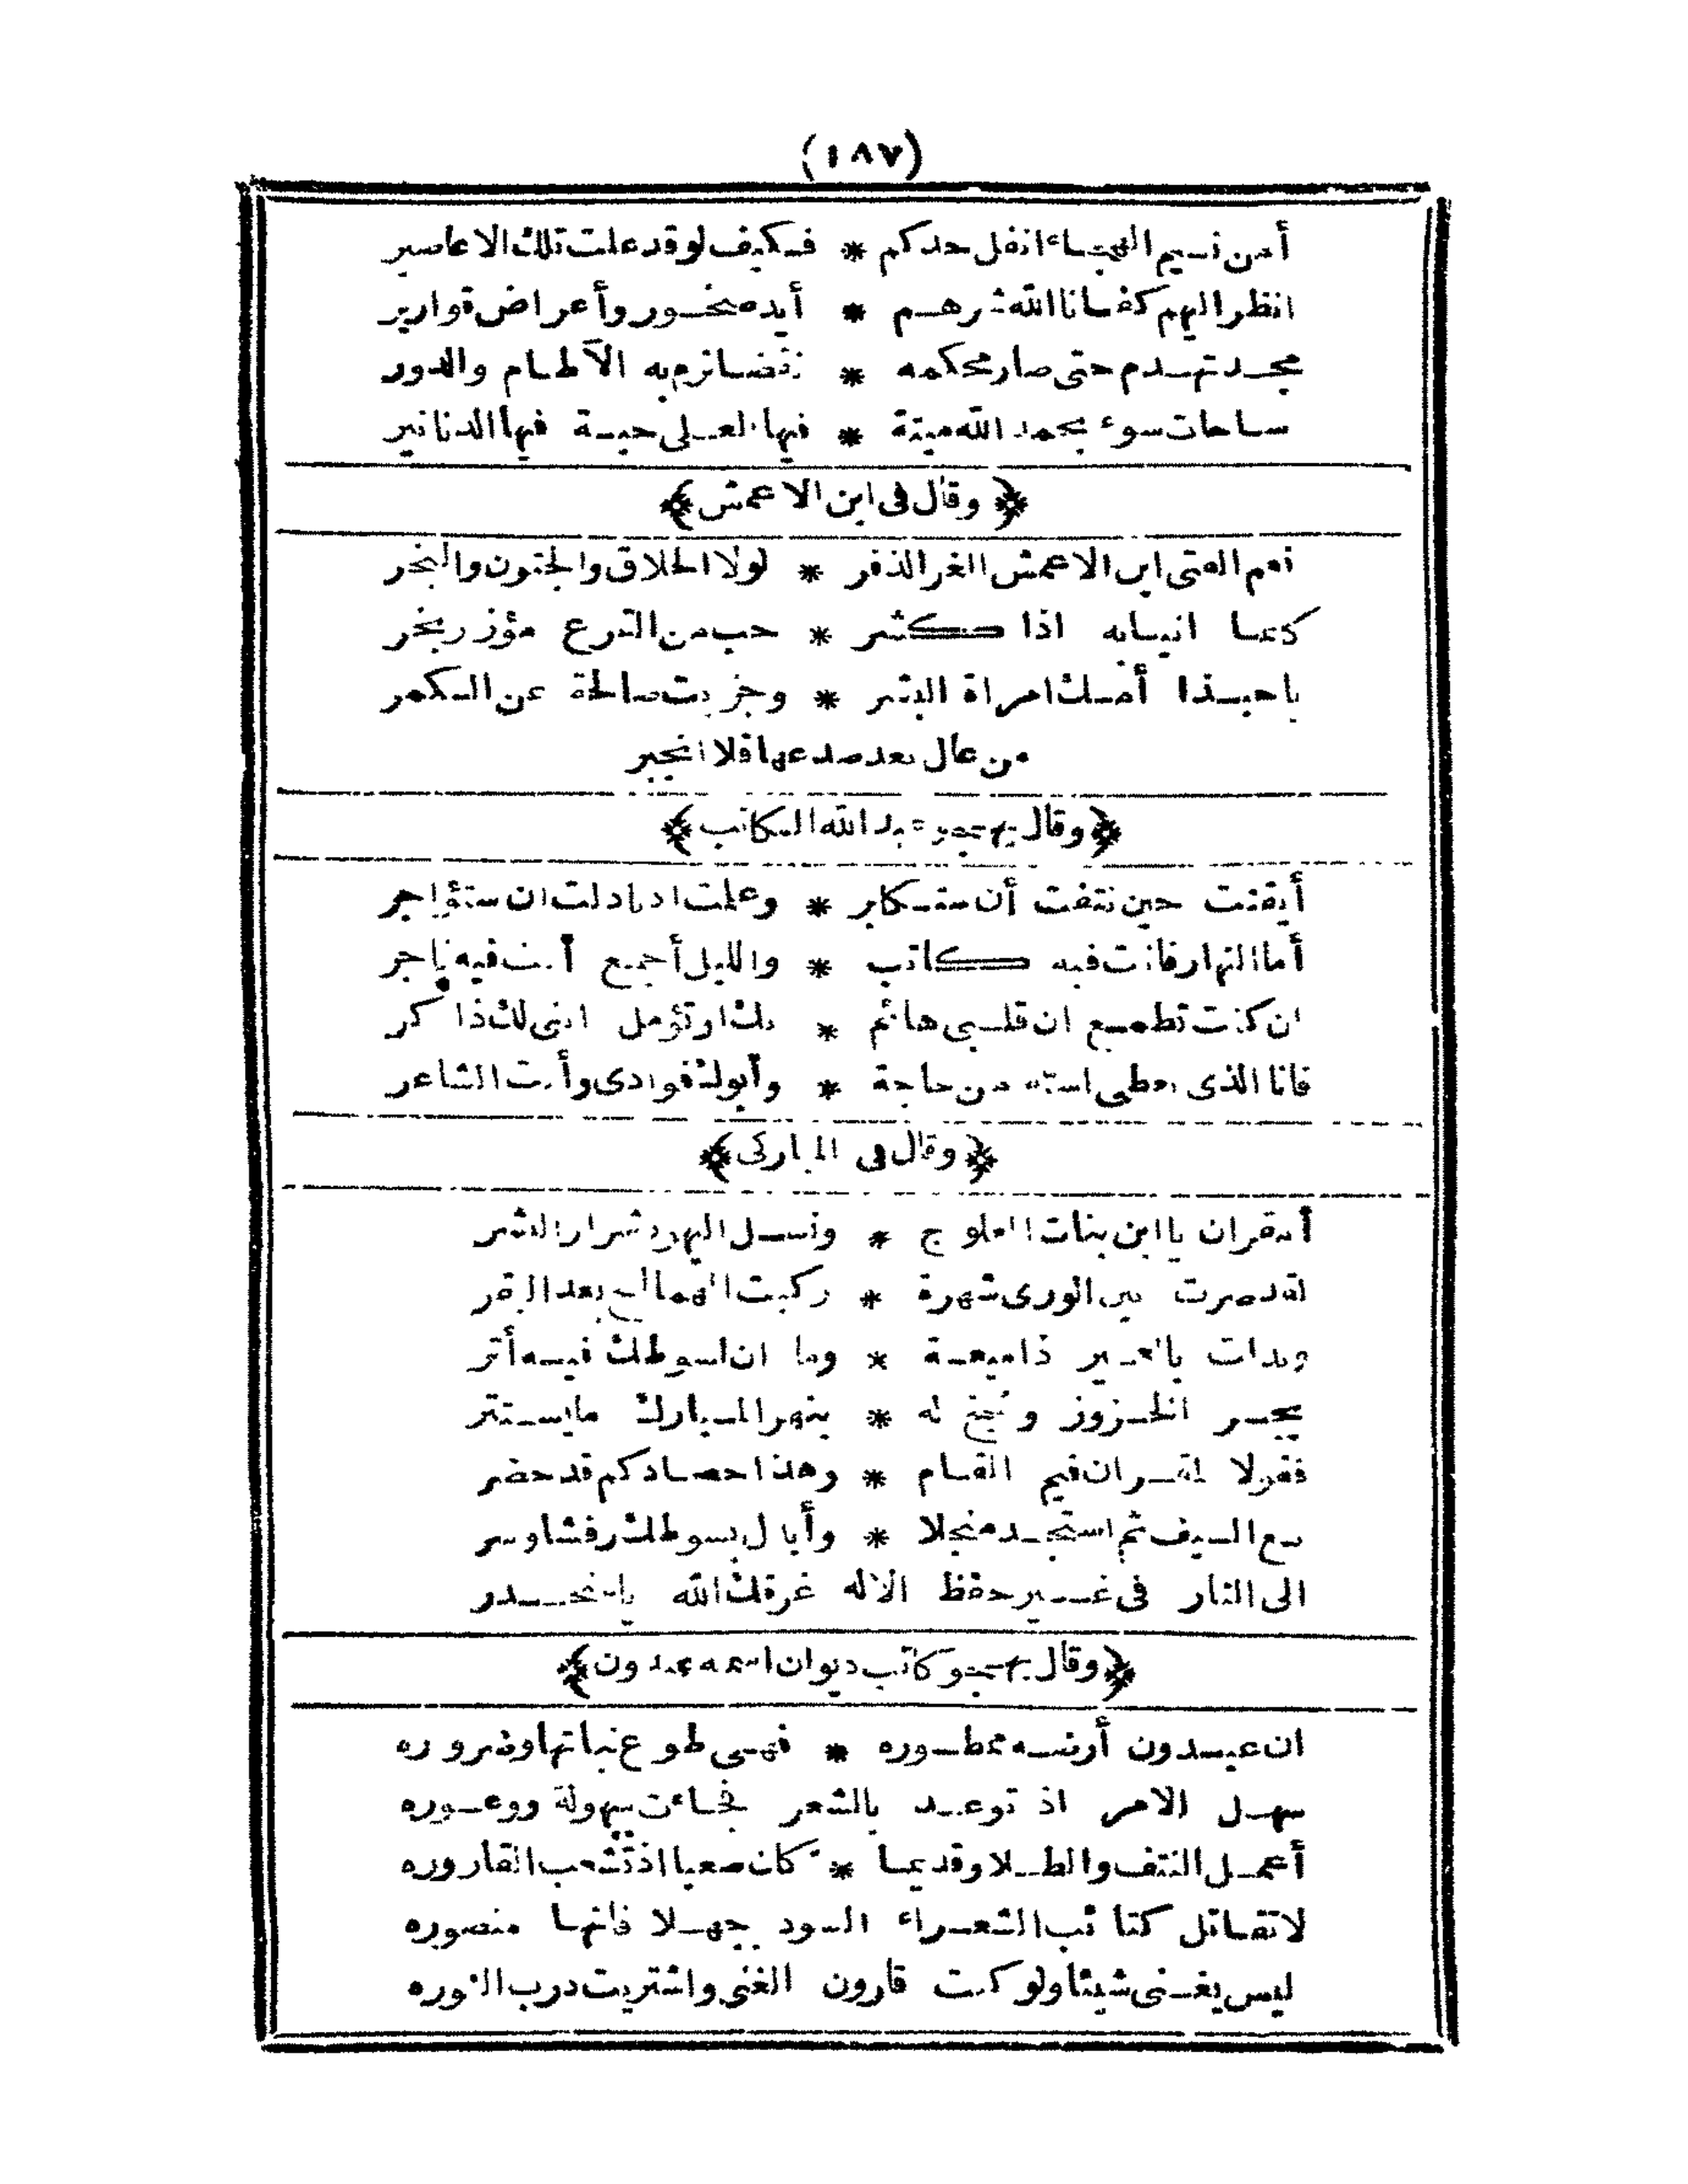 (١٨٧)
أمن نسيم الهجاء انفل حدكم * فكيف لو قد علت تلك الاعاصير
انظر اليهم كفانا الله شرهم * أيد صخور وأعراض قوارير
مجد تهدم حتى صار محكمه * نقضا ترم به الآطام والدور
ساحات سوء بحمد الله ميتة * فيها العلى حية فيها الدنانير
﴿وقال فى ابن الاعمش﴾
نعم الفتى ابن الاعمش الغر الذفر * لولا الحلاق والجنون والبخر
كانما انيابه اذا كشر * حب من القرع مؤزر بخر
ياحبذا أمك امراة البشر * وجزيت صالحة عن الكمر
من عال بعد صدعها فلا انجبر
﴿وقال يهجو عبد الله الكاتب﴾
أيقنت حين نتفت أن ستكابر * وعلمت اذ بادلت ان ستؤاجر
أما النهار فانت فيه كاتب * والليل أجمع أنت فيه تاجر
ان كنت تطمع ان قلبى هائم * بك او تؤمل اننى لك ذا كر
فانا الذى يعطى استه من حاجة * وأبوك فوادى وأنت الشاعر
﴿وقال فى المباركى﴾
أمقران يا ابن بنات العلوج * ونسل اليهود شرار البشر
لقد صرت بين الورى شهرة * ركبت الهماليج بعد البقر
وبدلت بالعير ذا ميعة * وما ان لسوطك فيه أثر
يجر الخزوز و له * بنهر المبارك ما يستتر
فقولا لمقران فيم المقام * وهذا حصادكم قد حضر
دع السيف ثم استجد منجلا * وأبدل بسوطك رفشا وسر
الى النار فى غير حفظ الاله غرقك الله يا منحدر
﴿وقال يهجو كاتب ديوان اسمه عبدون﴾
ان عبدون أرضه ممطوره * فهى طوع نباتها وضروره
سهل الامر اذ توعد بالشعر فجاءت سهولة ووعوره
أعمل النتف والطلا وقديما * كان صعبا اذ تشعب القاروره
لا تقاتل كتائب الشعراء السود جهلا فانها منصوره
ليس يغنى شيئا ولو كنت قارون الغنى واشتريت درب النوره